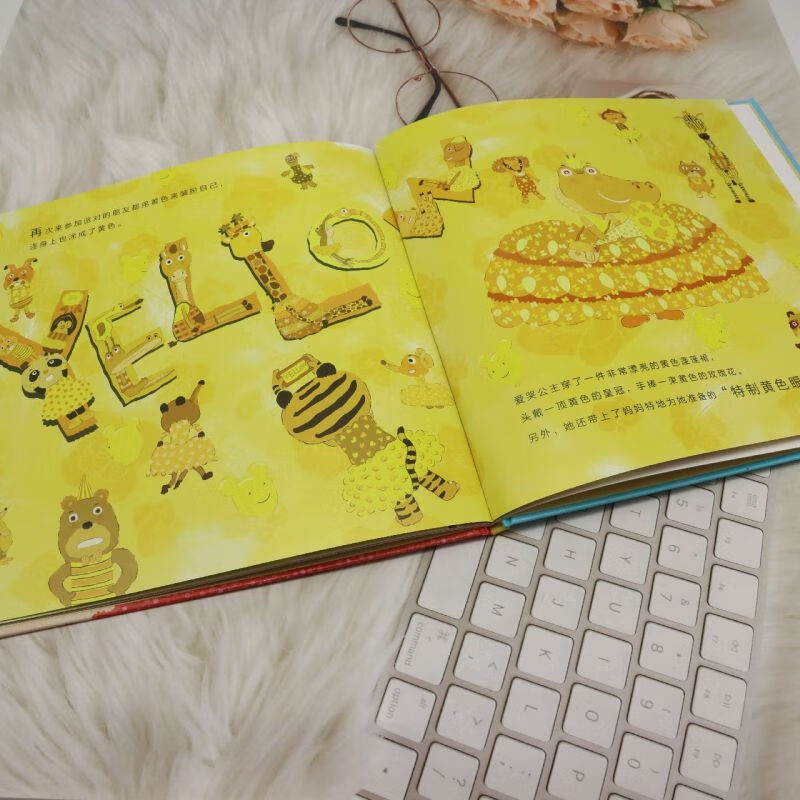 再次来参加派对的朋友都用黄色来装扮自己，
连身上也涂成了黄色。
YELLOW
YELLOW
爱哭公主穿了一件非常漂亮的黄色蓬蓬裙，
头戴一顶黄色的皇冠，手捧一束黄色的玫瑰花。
另外，她还带上了妈妈特地为她准备的“特制黄色眼
T 5
N H Y 6
M J U & 7
command ⌘ < , K I * 8
option alt > . L O ( 9
? /